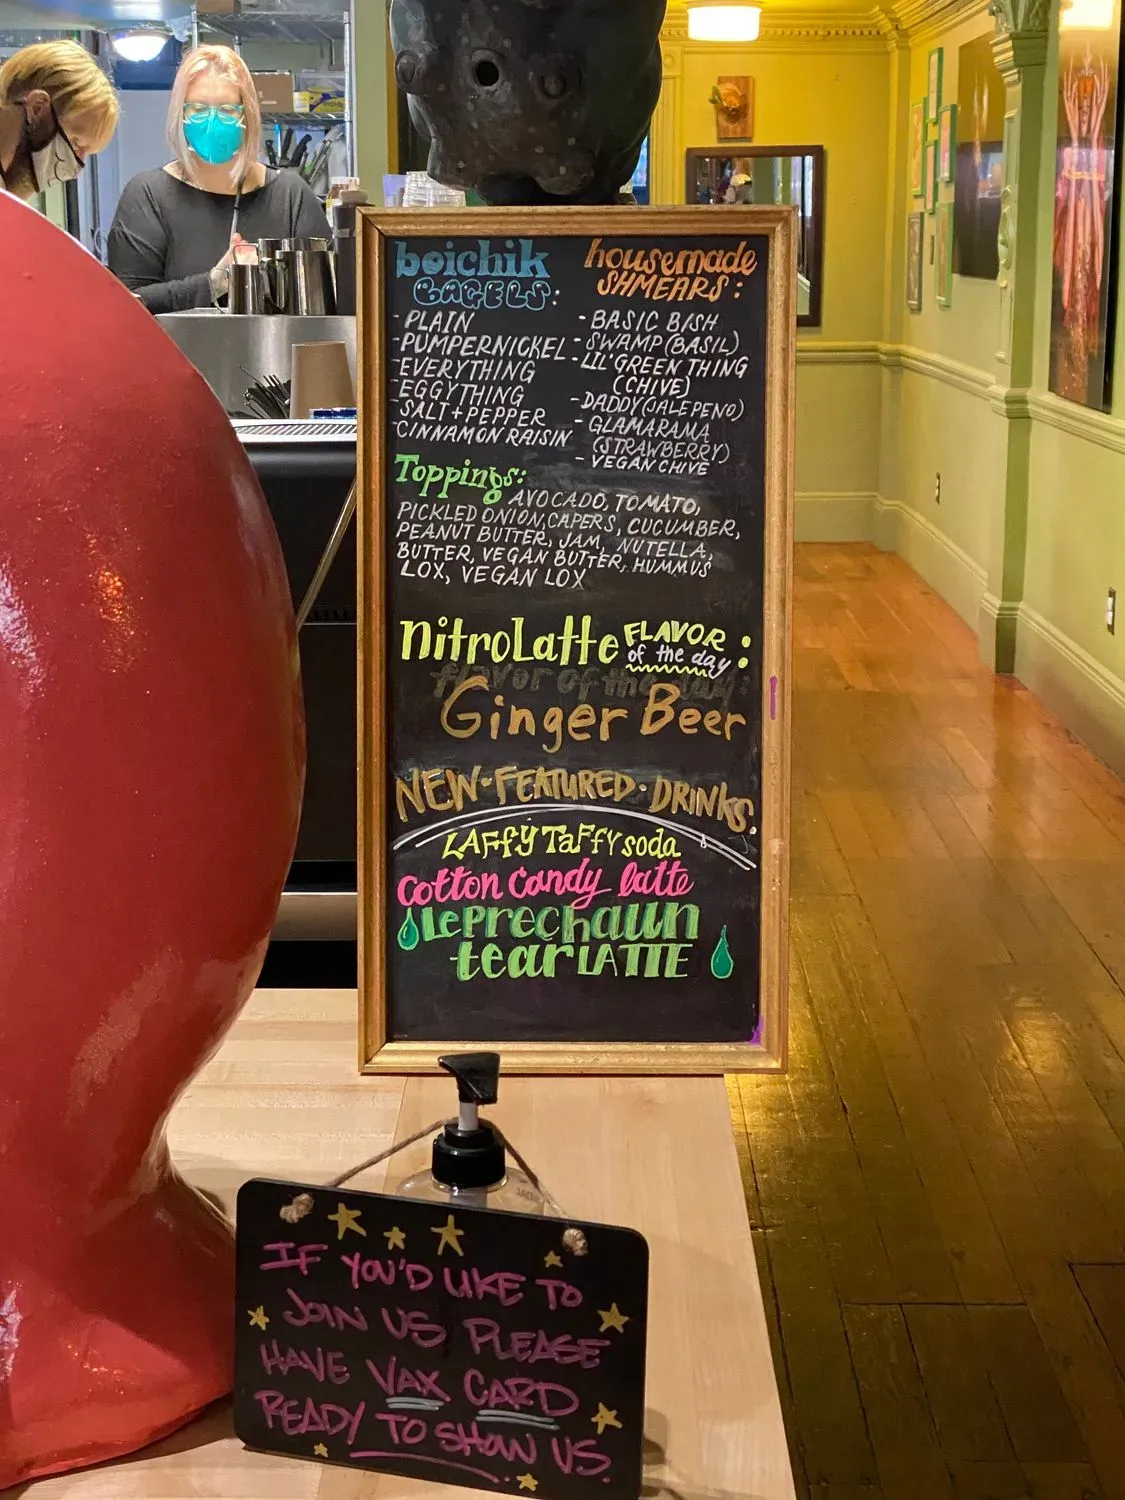 boichik
BAGELS:
- PLAIN
- PUMPERNICKEL
- EVERYTHING
- EGGYTHING
- SALT + PEPPER
- CINNAMON RAISIN
housemade
SHMEARS:
- BASIC BISH
- SWAMP (BASIL)
- LIL' GREEN THING
(CHIVE)
- DADDY (JALEPENO)
- GLAMARAMA
(STRAWBERRY)
- VEGAN CHIVE
Toppings:
AVOCADO, TOMATO,
PICKLED ONION, CAPERS, CUCUMBER,
PEANUT BUTTER, JAM, NUTELLA,
BUTTER, VEGAN BUTTER, HUMMUS
LOX, VEGAN LOX
NitroLatte FLAVOR of the day:
flavor of the day:
Ginger Beer
NEW·FEATURED·DRINKS.
LAFFY TAFFY soda
Cotton Candy latte
Leprechaun
tear LATTE
IF YOU'D LIKE TO
JOIN US PLEASE
HAVE VAX CARD
READY TO SHOW US.